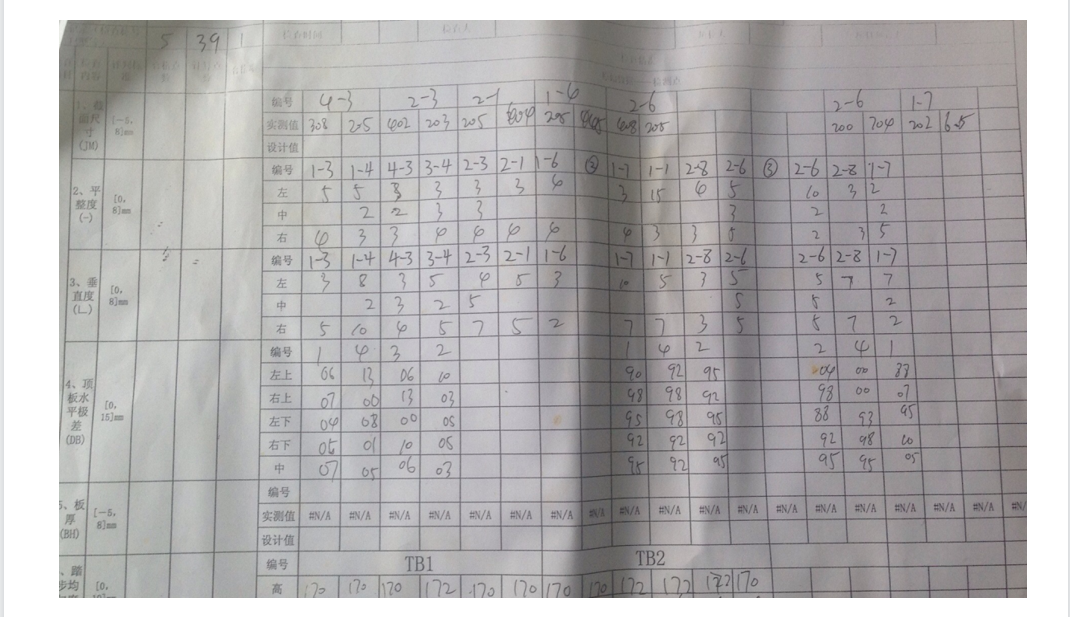 5 39 1
编号 4-3 2-3 2-1 1-6 2-6 2-6 1-7
1、截面尺寸(JM) [-5, 8]mm 实测值 308 205 602 203 205 604 205 608 205 200 704 202
设计值
编号 1-3 1-4 4-3 3-4 2-3 2-1 1-6 ② 1-7 1-1 2-8 2-6 ③ 2-6 2-8 1-7
2、平整度(-) [0, 8]mm 左 5 5 3 3 3 3 6 3 15 6 5 10 3 2
中 2 2 3 3 3 2 2
右 4 3 3 4 4 4 4 4 3 3 2 3 5
编号 1-3 1-4 4-3 3-4 2-3 2-1 1-6 1-7 1-1 2-8 2-6 2-6 2-8 1-7
3、垂直度(L) [0, 8]mm 左 3 8 3 5 4 5 3 10 5 3 5 5 7 7
中 2 3 2 5 5 5 2
右 5 10 4 5 7 5 2 7 7 3 5 5 7 2
编号 1 4 3 2 1 4 2 2 4 1
4、顶板水平极差(DB) [0, 15]mm 左上 06 13 06 10 90 92 95 04 00 83
右上 07 00 13 03 98 98 92 98 00 07
左下 04 08 00 05 95 98 95 88 93 95
右下 05 01 10 05 92 92 92 92 98 10
中 07 05 06 03 95 92 95 95 95 05
编号
5、板厚(BH) [-5, 8]mm 实测值 #N/A #N/A #N/A #N/A #N/A #N/A #N/A #N/A #N/A #N/A #N/A #N/A #N/A #N/A #N/A #N/A #N/A #N/A
设计值
编号 TB1 TB2
、踏步均 [0, 高 170 170 170 172 170 170 170 170 172 172 172 170